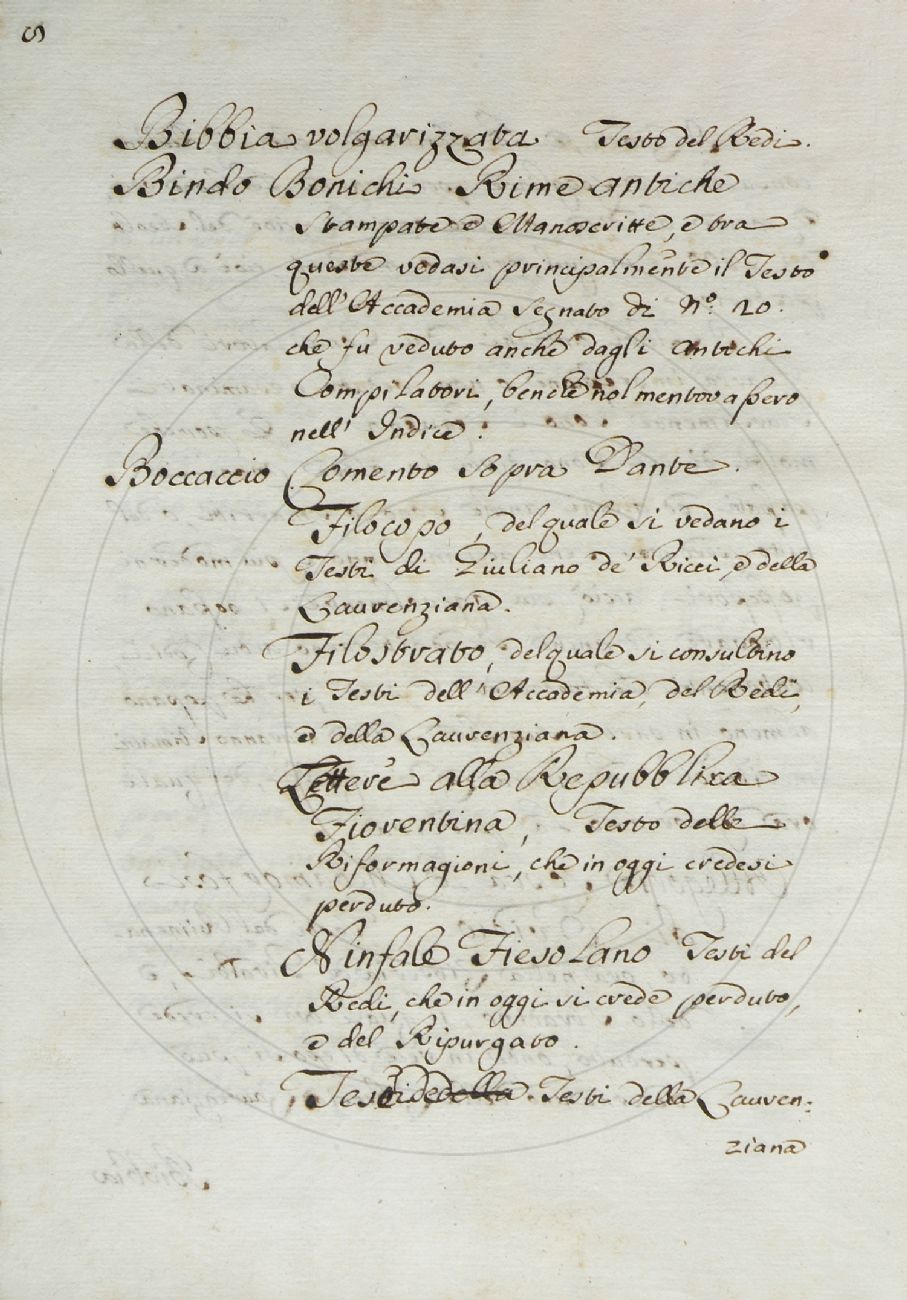 8
Bibbia volgarizzata Testo del Redi.
Bindo Bonichi Rime antiche
Stampate e Manoscritte, e tra
queste vedasi principalmente il Testo
dell'Accademia segnato di N.º 20.
che fu veduto anche dagli antichi
Compilatori, benche nol mentova pero
nell' Indice.
Boccaccio Comento sopra Dante.
Filocopo, del quale si vedano i
Testi di Giuliano de' Ricci, e della
Laurenziana.
Filostrato, del quale si consultino
i Testi dell' Accademia, del Redi,
e della Laurenziana.
Lettere alla Repubblica
Fiorentina, Testo delle
Riformagioni, che in oggi credesi
perduto.
Ninfale Fiesolano Testi del
Redi, che in oggi si crede perduto,
e del Ripurgato.
Testi della Lauren:
ziana